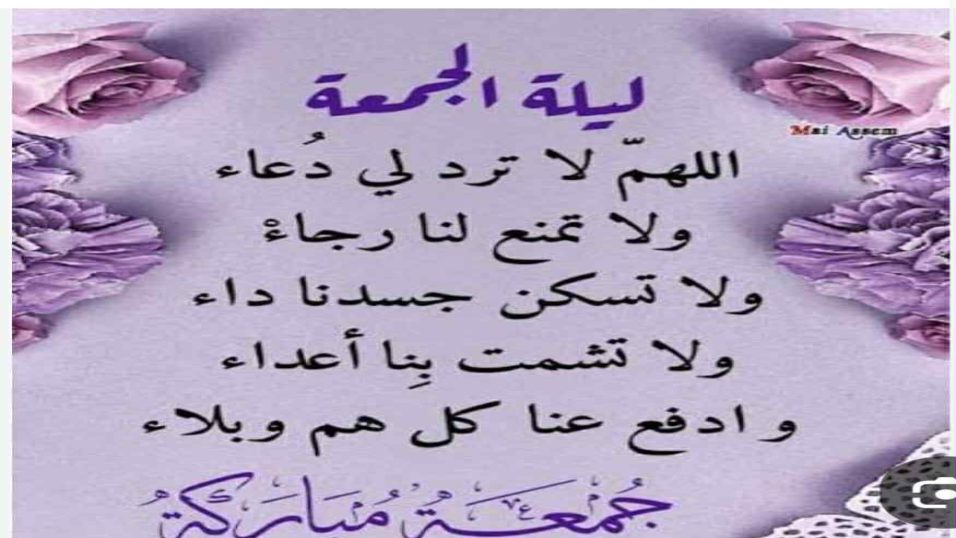 ليلة الجمعة
Mai Assem
اللهمّ لا ترد لي دُعاء
ولا تمنع لنا رجاءْ
ولا تسكن جسدنا داء
ولا تشمت بِنا أعداء
و ادفع عنا كل هم وبلاء
جُمعَة مُبَارَكَةُ